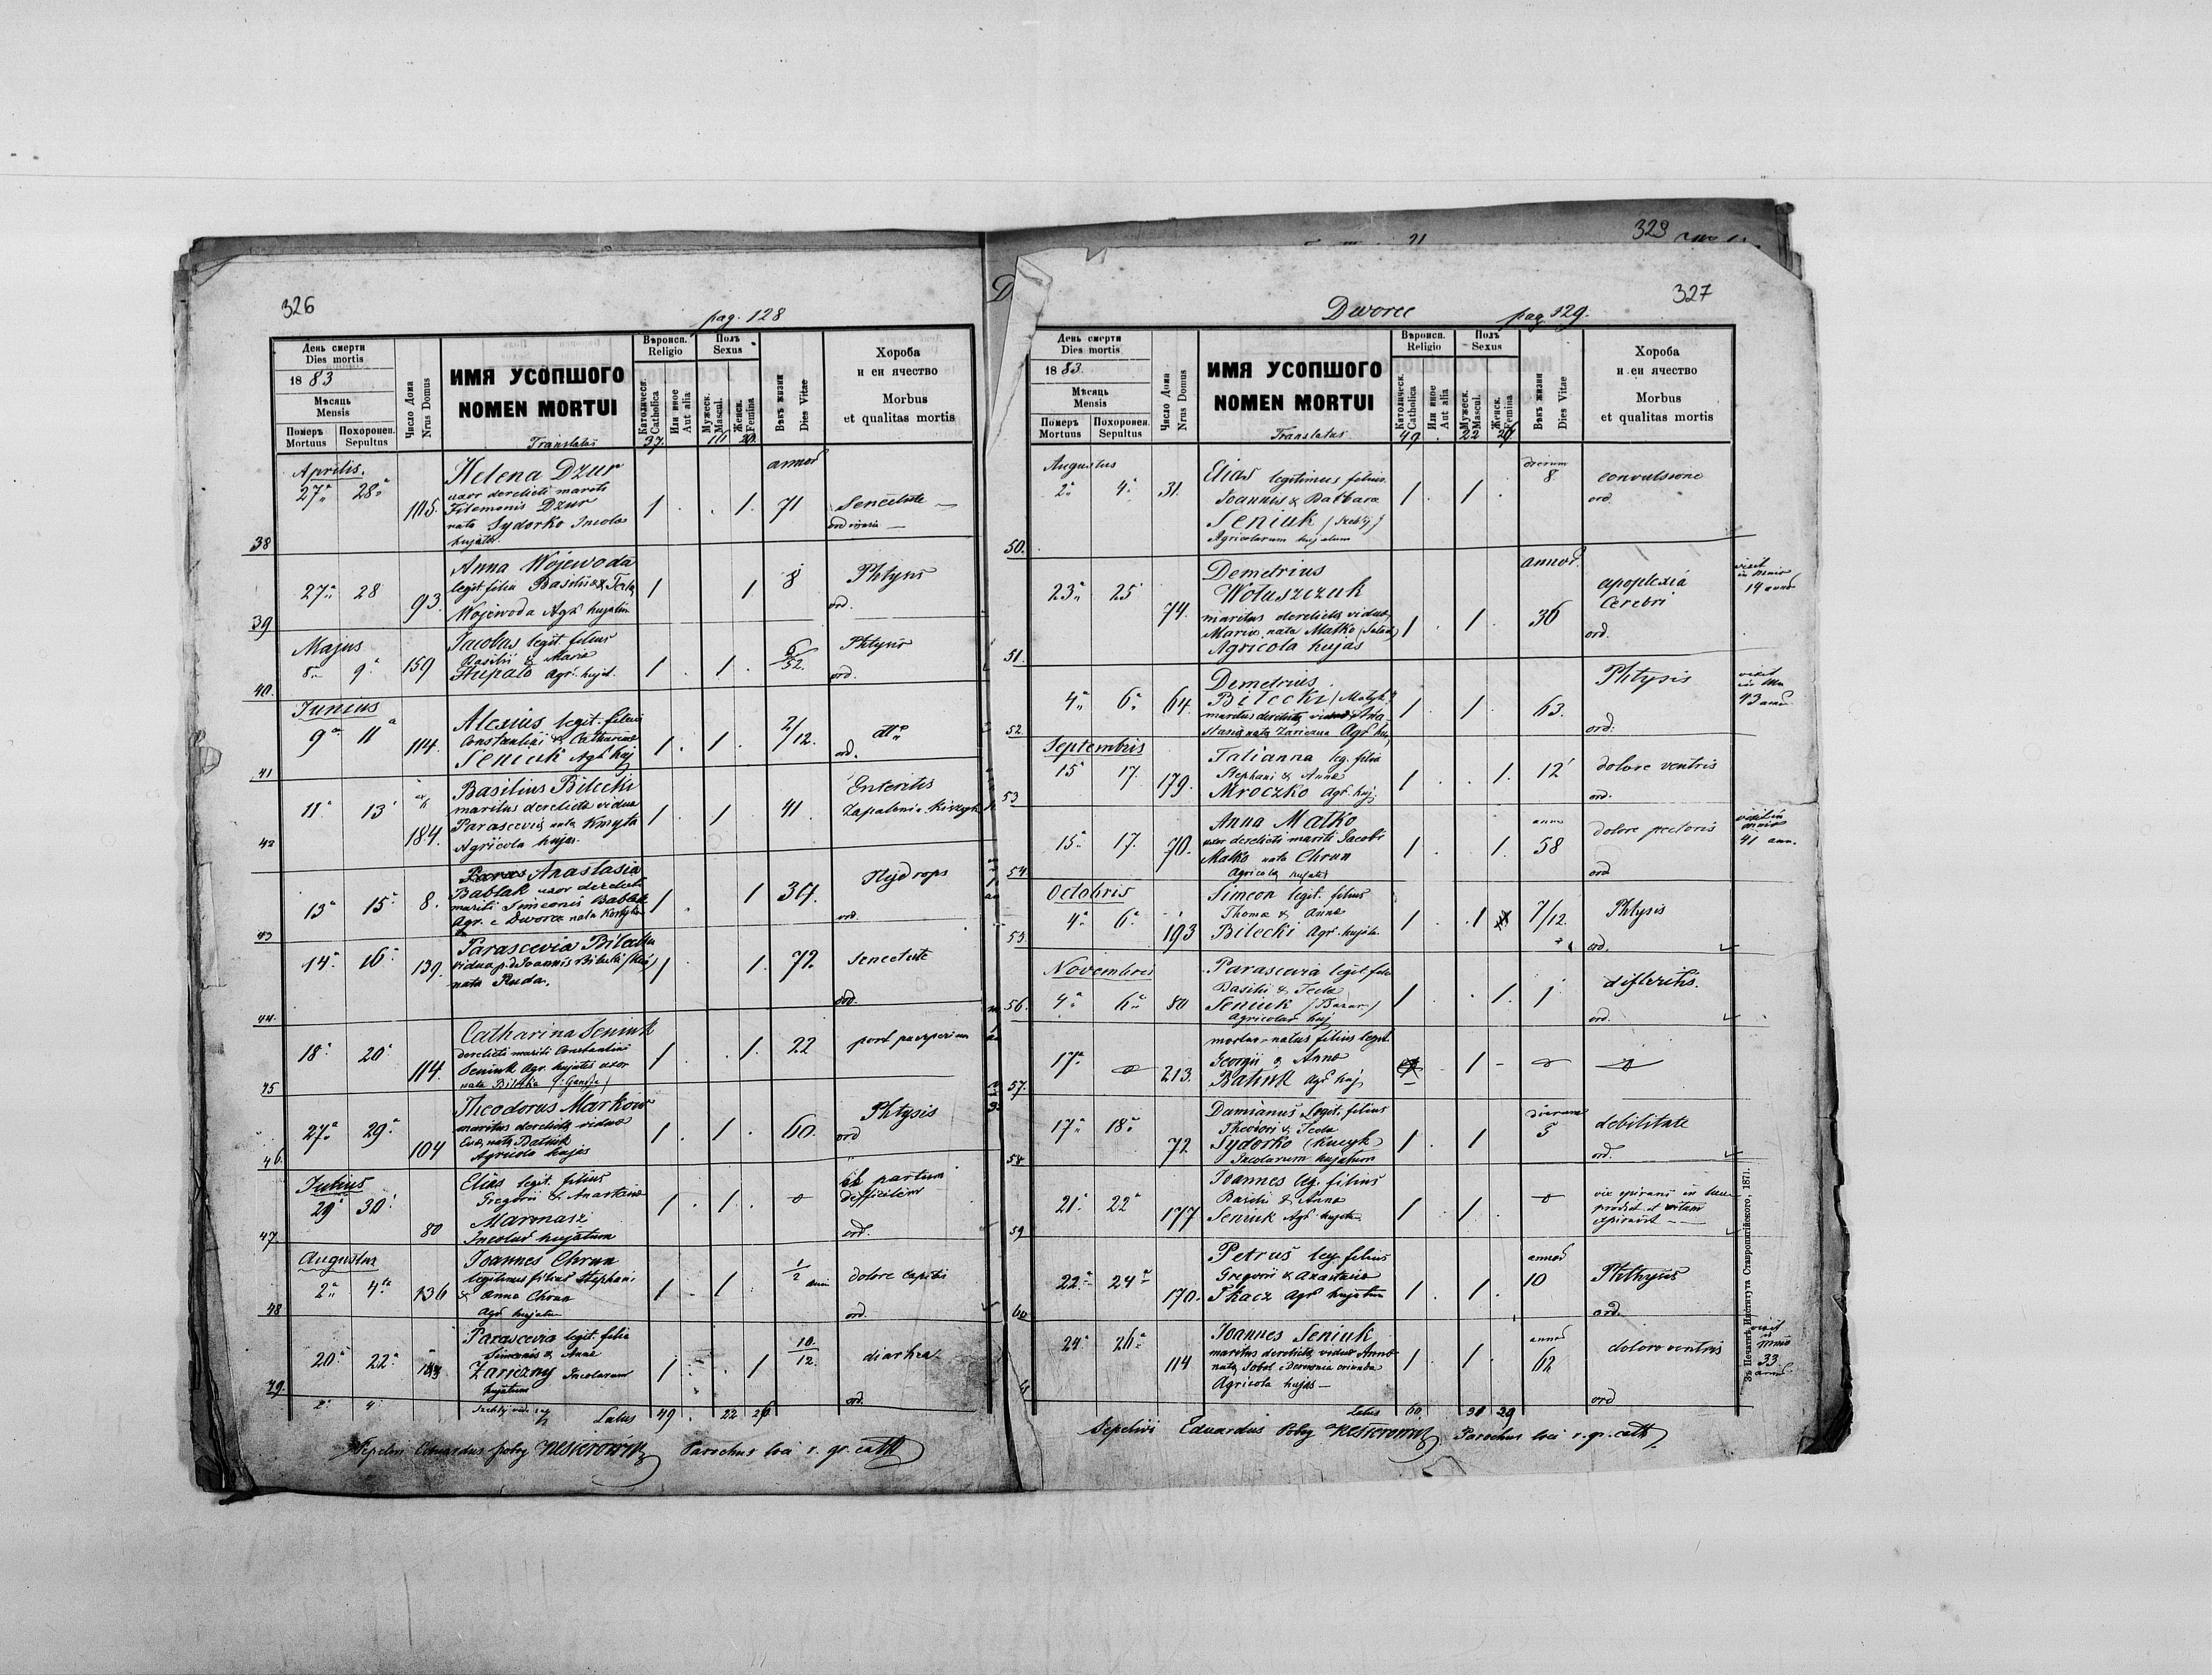 326
pag. 128
День смерти
Dies mortis
1883
Мѣсяць
Mensis
Померъ
Mortuus
Похоронен.
Sepultus
Число Дома
Nrus Domus
ИМЯ УСОПШОГО
NOMEN MORTUI
Translatus
Вѣроисп.
Religio
Католическ.
Catholica
Или иное
Aut alia
37
Полъ
Sexus
Мужеск.
Mascul.
Женск.
Femina
Вѣкъ жизни
Dies Vitae
Хороба
и еи ячество
Morbus
et qualitas mortis
Aprilis.
38
27ª 28ª 105. Helena Dzur
uxor derelicti mariti
Filemonis Dzur
nata Sydorko Incolae
hujatis.
1 . . 1. annor 71 Senectute
ordinaria
39
27ª 28 93. Anna Wojewoda
legit. filia Basilii & Tecla
Wojewoda Agr. hujatum
1 1 8 Phtysis
ord.
Majus
40.
8ª 9ª 159 Jacobus legit. filius
Basilii & Maria
Hupalo Agr. hujat.
1 . 1 . 6/52. Phtysis
ord.
Junius
41
9ª 11ª 114. Alexius legit. filius
Constantini & Catharina
Seniuk Agr. huj
1 . 1 . 2/12. dtto
ord.
42
11ª 13ª 184. Basilius Bilecki
maritus derelicta vidua
Parascevia nata Kmyta
Agricola hujas.
1 . 1 41 Enteritis
Zapalenie Kiszek
43
13ª 15ª 8. Anastasia
Bablak uxor derelicti
mariti Simeonis Bablak
Agr. e Dworce nata
1 . 1 Hydrops
ord.
44.
14ª 16ª 139. Parascevia Bilecka
vidua p. d. Joannis Bilecki
nata Ruda.
1 . 1. 72. Senectute
ord.
45
18ª 20ª 114. Catharina Seniuk
derelicti mariti Constantini
Seniuk Agr. hujatis uxor
nata Bilecka
1 . . 1. 22 post puerperium
46.
27ª 29ª 104 Theodorus Markow
maritus derelicta vidua
Eva nata Batiuk
Agricola hujas
1 . 1 . 60. Phtysis
ord
Julius
47.
29ª 30ª 80 Elias legit. filius
Gregorii & Anastasia
Marmasz
Incolae hujatum
1 . 1. 0 ob partum
difficilem
ord.
Augustus
48
2ª 4ta 136 Joannes Chrun
legitimus filius Stephani
& Anna Chrun
Agr. hujatum
1 . 1 . 1/2 anni dolore capitis
ord.
49.
20ª 22ª Parascevia legit. filia
Simeonis & Anna
Zariczny Incolarum
hujatum
1 . . 1 10/12. diarhea
ord.
2ª 4ª
Latus 49 . 22 26
Sepelivi Eduardus Pobog Nesterowicz Parochus loci r. gr. cath
329
327
Dworce
pag 129.
День смерти
Dies mortis
1883.
Мѣсяць
Mensis
Померъ
Mortuus
Похоронен.
Sepultus
Число Дома
Nrus Domus
ИМЯ УСОПШОГО
NOMEN MORTUI
Translatus
Вѣроисп.
Religio
Католическ.
Catholica
Или иное
Aut alia
49 .
Полъ
Sexus
Мужеск.
Mascul.
Женск.
Femina
22
Вѣкъ жизни
Dies Vitae
Хороба
и еи ячество
Morbus
et qualitas mortis
Augustus
50.
2ª 4ª 31. Elias legitimus filius
Joannis & Barbara
Seniuk
Agricolarum hujatum
1 . 1 . dierum 8 convulsione
ord.
51.
23ª 25 74. Demetrius
Woluszczuk
maritus derelicta vidua
Maria nata Matko
Agricola hujas
1 . 1 . annor. 36 apoplexia
Cerebri
ord.
vixit
in matrimonio
14 annos
52.
4ª 6ª 64. Demetrius
Bilecki
maritus derelicta vidua Ana-
stasia nata Zariczna Agr. huj
1 . 1 . 63. Phtysis
ord.
vixit
43 annos
Septembris
53
15 17. 179. Tatianna leg. filia
Stephani & Anna
Mroczko Agr. huj.
1 . . 1. 12 dolore ventris
ord.
54
15ª 17. 70. Anna Matko
uxor derelicti mariti Jacobi
Matko nata Chrun
Agricola hujatis
1 . . 1. anno 58 dolore pectoris
ord
41 ann.
Octobris
4ª 6ª 193 Simeon legit. filius
Thoma & Anna
Bilecki Agr. hujat.
1 . 1 7/12. Phtysis
ord.
Novembris
56.
4ª 6ª 80 Parascevia legit. filia
Basilii & Tecla
Seniuk
Agricolae huj
1 . . 1. 1 difteritis.
ord.
57.
17ª 0 213. mortuo-natus filius legit.
Georgii & Anna
Batiuk Agr. huj.
1 - 0 0
58
17ª 18ª 72 Damianus legit. filius
Theodori & Tecla
Sydorko
Incolarum hujatum
1 . 1 dierum 5 debilitate
ord.
59
21ª 22ª 177 Joannes leg. filius
Basilii & Anna
Seniuk Agr. hujatum
1 . 1 . 0 vix spirans in lucem
prodiit et vitam
expiravit
60
22ª 24ª 170. Petrus leg. filius
Gregorii & Anastasia
Tkacz Agr. hujatum
1 . 1 . annos 10 Phthysis
ord.
24ª 26ª 114 Joannes Seniuk
maritus derelicta vidua Anna
nata Sobol e Derewnia oriunda
Agricola hujas
1 . 1 . annos 62 dolore ventris
ord
vixit
33
annos
Latus 60. 29
Sepelivi Eduardus Pobog Nesterowicz Parochus loci r. gr. cath.
Въ Печатни Института Ставропигійского, 1871.